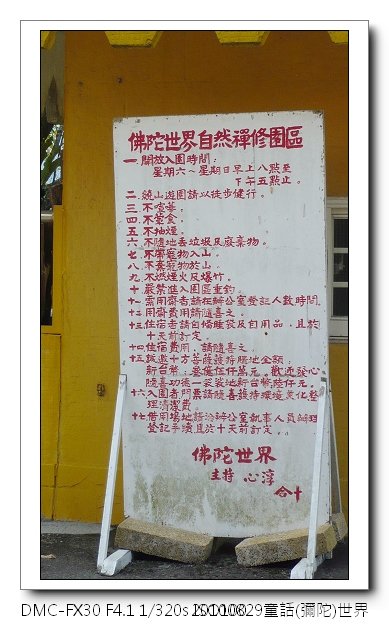 佛陀世界自然禪修園區
一.開放入園時間:
星期六~星期日早上八點至
下午五點止。
二.繞山遊園請以徒步健行。
三.不喧嘩。
四.不葷食。
五.不抽煙。
六.不隨地丟垃圾及廢棄物。
七.不帶寵物入山。
八.不棄寵物於山。
九.不燃煙火及爆竹。
十.嚴禁進入園區垂釣。
十一需用齋者請在辦公室登記人數時間.
十二.用齋費用請隨喜之。
十三.住宿者請自備睡袋及自用品,且於
十天前訂定。
十四住宿費用,請隨喜之.
十五.誠邀十方菩薩護持購地金額
新台幣.壹億伍仟萬元。歡迎發心
隨喜功德一袋裝地新台幣陸仟元。
十六入園者門票請隨喜護持環境美化整
理清潔費.
十七.借用場地請洽辦公室執事人員辦理
登記手續且於十天前訂定.
佛陀世界
主持 心淳
合十
DMC-FX30 F4.1 1/320s ISO100 20100829童話(彌陀)世界